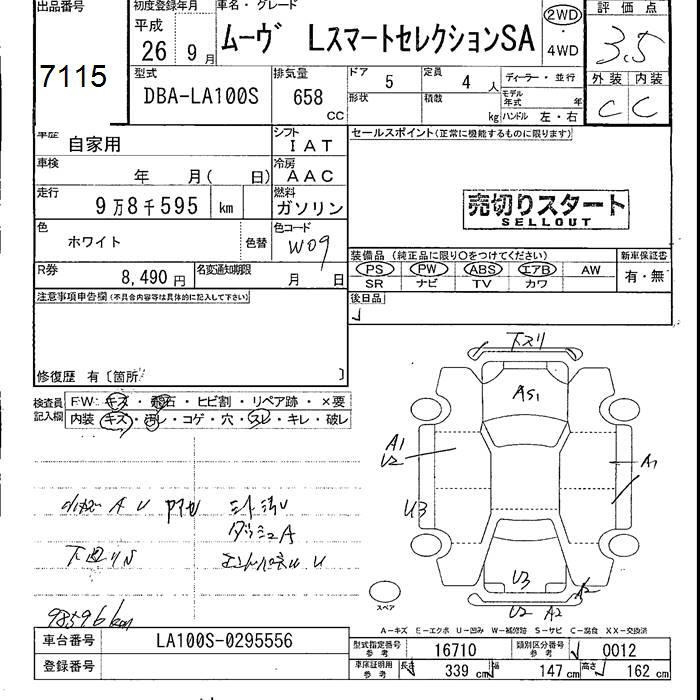 出品番号
7115
初度登録年月
平成
26 9月
車名・グレード
ムーヴ LスマートセレクションSA
2WD
・
4WD
評価点
3.5
外装 内装
C C
型式
DBA-LA100S
排気量
658
CC
ドア 5
定員 4 人
形状
積載 kg
ディーラー・並行
モデル年式 年
ハンドル 左・右
車歴 自家用
シフト IAT
車検 年 月( 日)
冷房 AAC
走行 9万8千595 km
燃料 ガソリン
色 ホワイト 色替
色コード W09
R券 8,490円
名変通知期限 月 日
セールスポイント(正常に機能するものに限ります)
売切りスタート
SELLOUT
装備品 (純正品に限り○をつけてください)
PS PW ABS エアB AW
SR ナビ TV カワ
新車保証書
有・無
後日品
注意事項申告欄(不具合内容等は具体的に記入して下さい)
修復歴 有〔箇所 〕
検査員記入欄
FW・キズ・飛石・ヒビ割・リペア跡・×要
内装・キズ・汚レ・コゲ・穴・スレ・キレ・破レ
A U
ダッシュA
98596km
下スリ
AS1
A1
U2
U3
A1
U3
A2
U2 A2
スペア
A-キズ E-エクボ U-凹み W-補修跡 S-サビ C-腐食 XX-交換済
車台番号 LA100S-0295556
登録番号
型式指定番号参考 16710
類別区分番号参考 0012
車庫証明用参考 長さ 339cm 幅 147cm 高さ 162cm